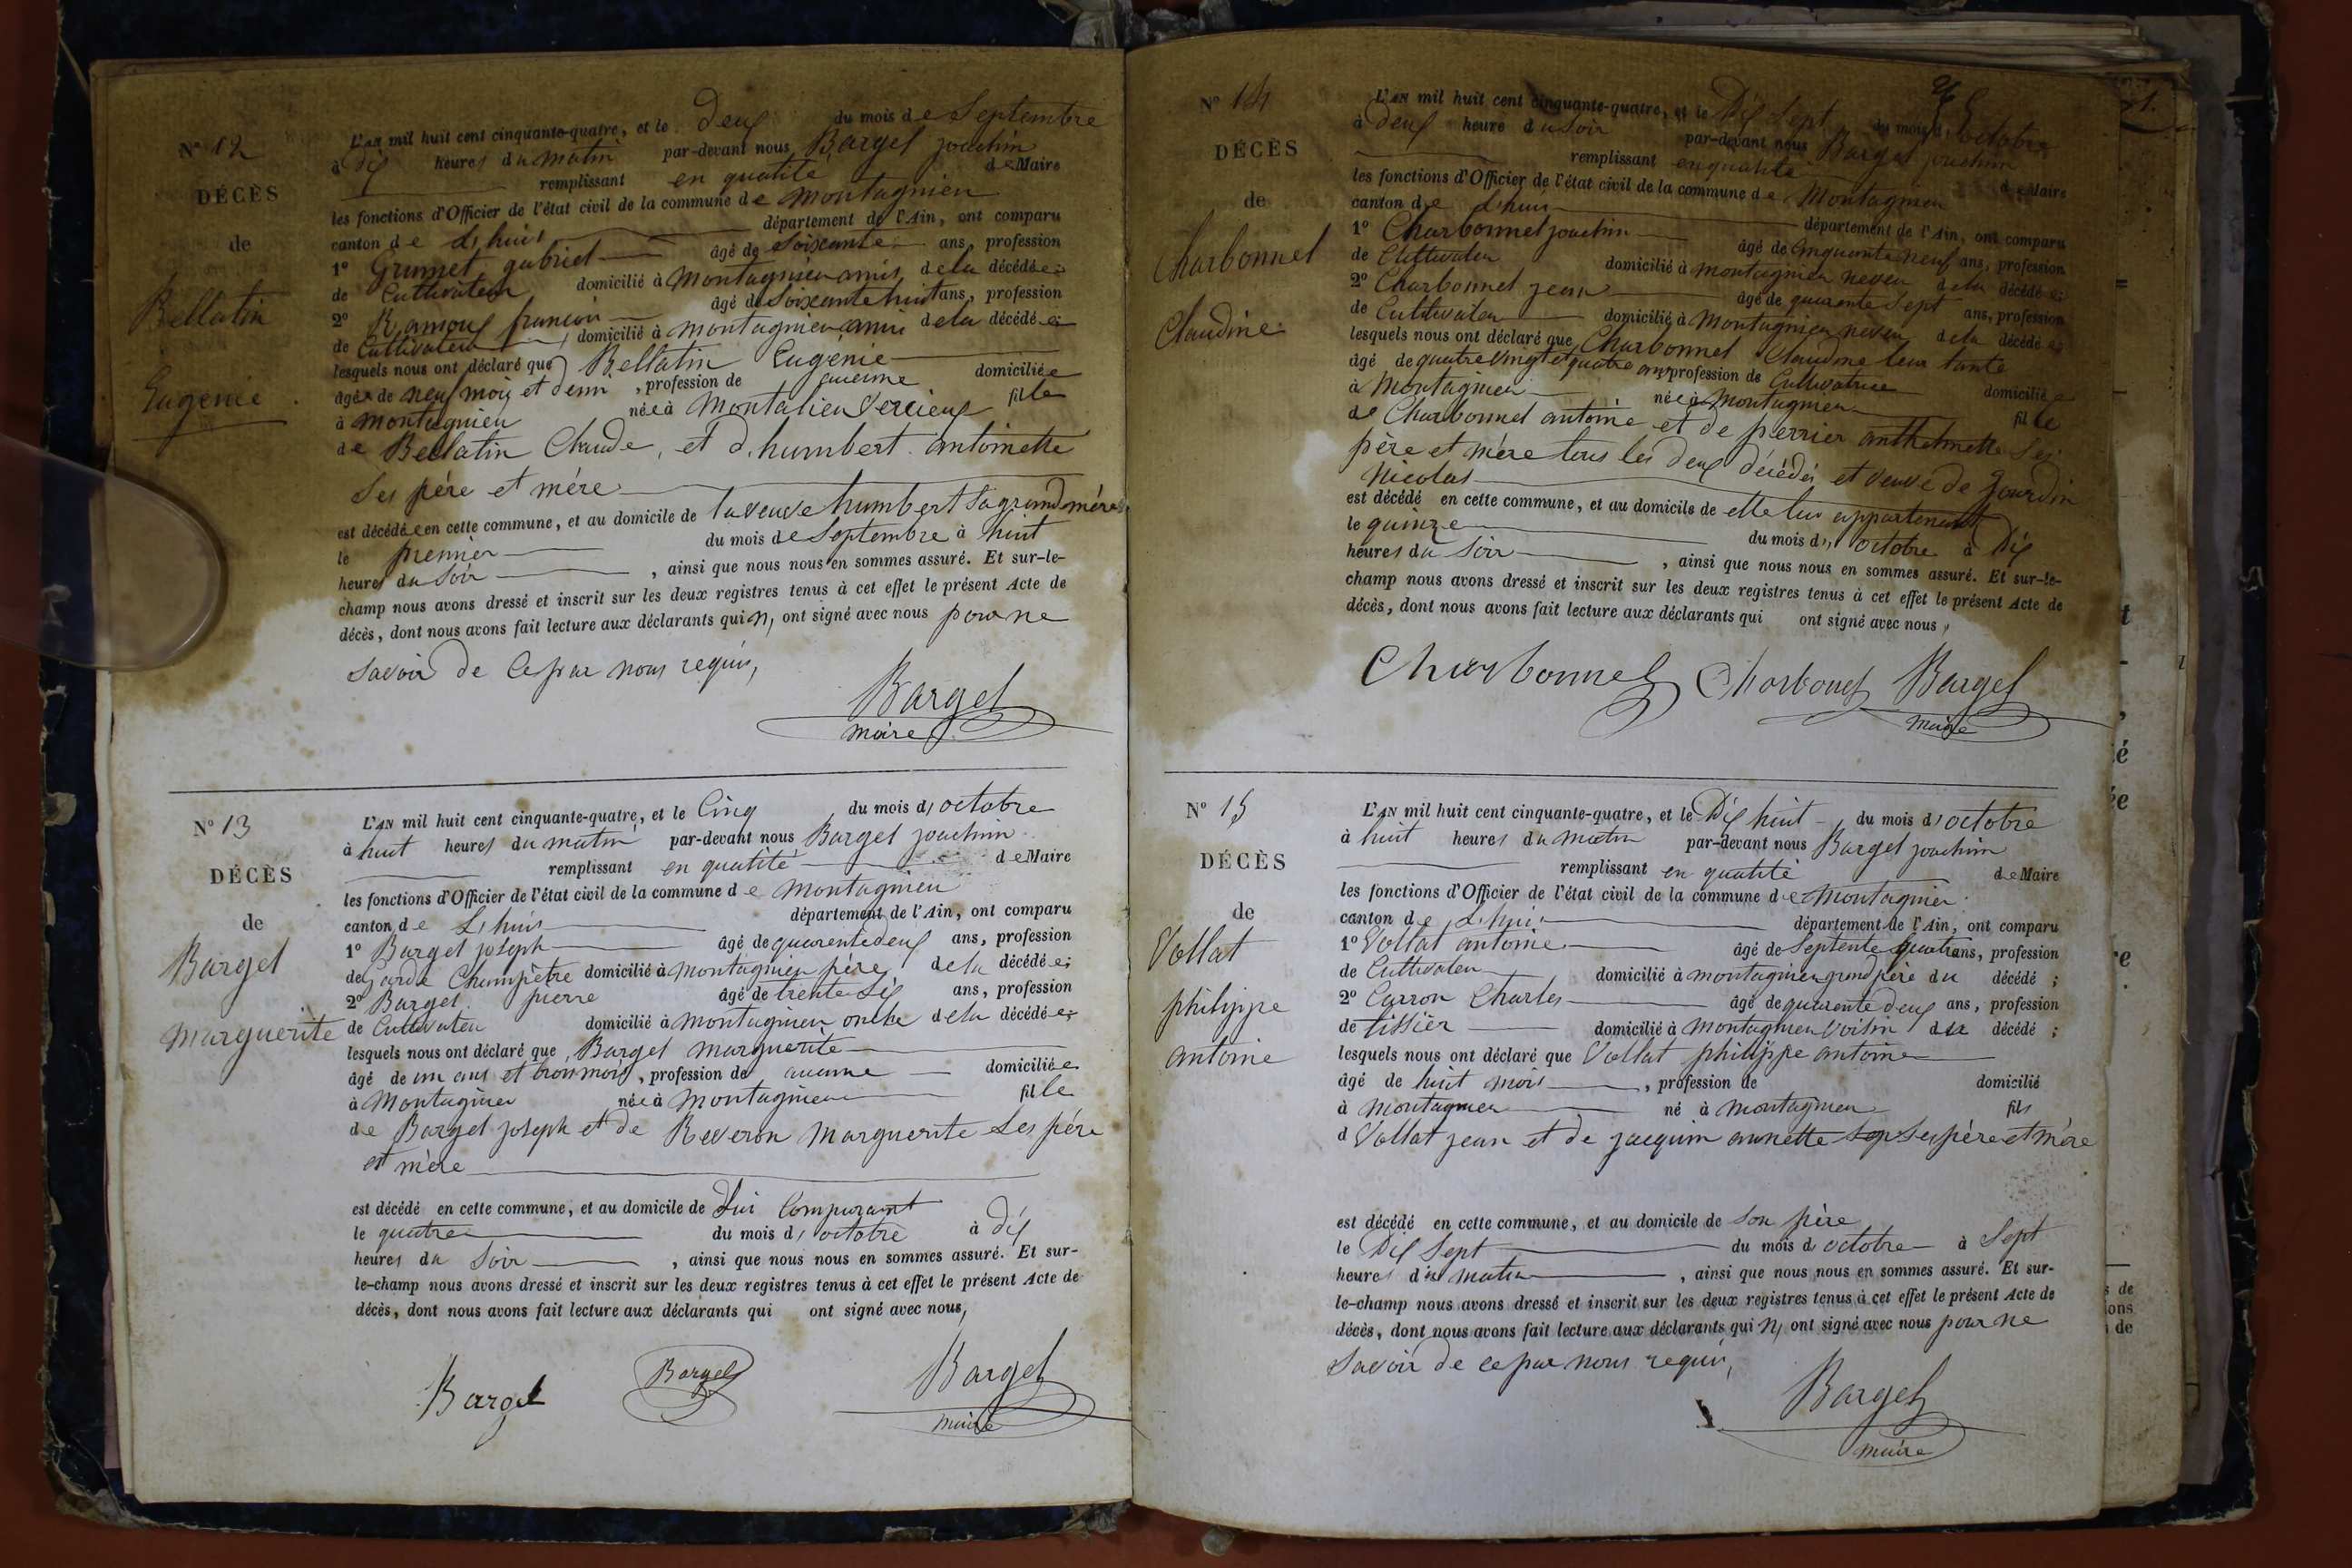 N° 12
DÉCÈS
de
Bellatin
Eugénie
L'AN mil huit cent cinquante-quatre, et le Deux du mois de Septembre
à dix heures du matin par-devant nous Barget joachim
remplissant en qualité de Maire
les fonctions d'Officier de l'état civil de la commune de Montagnieu
canton de Lhuis département de l'Ain, ont comparu
1° Grumet gabriel âgé de Soixante ans, profession
de Cultivateur domicilié à Montagnieu amis de la décédée;
2° Ramoux françois âgé de Soixante huit ans, profession
de Cultivateur domicilié à montagnieu ami de la décédée
lesquels nous ont déclaré que Bellatin Eugénie
âgée de neuf mois et demi, profession de aucune domiciliée
à montagnieu née à Montalieu Vercieux fille
de Bellatin Claude, et d'humbert antoinette
Ses père et mère
est décédée en cette commune, et au domicile de la veuve humbert Sa grand mère
le premier du mois de Septembre à huit
heures du Soir, ainsi que nous nous en sommes assuré. Et sur-le-
champ nous avons dressé et inscrit sur les deux registres tenus à cet effet le présent Acte de
décès, dont nous avons fait lecture aux déclarants qui n, ont signé avec nous pour ne
Savoir de ce par nous requis,
Barget
maire
N° 13
DÉCÈS
de
Barget
Marguerite
L'AN mil huit cent cinquante-quatre, et le Cinq du mois d, octobre
à huit heures du matin par-devant nous Barget joachim
remplissant en qualité de Maire
les fonctions d'Officier de l'état civil de la commune de Montagnieu
canton de Lhuis département de l'Ain, ont comparu
1° Barget joseph âgé de quarente deux ans, profession
de Garde Champètre domicilié à Montagnieu père de la décédée;
2° Barget pierre âgé de trente Six ans, profession
de Cultivateu domicilié à Montagnieu oncle de la décédée;
lesquels nous ont déclaré que, Barget Marguerite
âgé de un ans et trois mois, profession de aucune domiciliée
à Montagnieu née à Montagnieu fille
de Barget joseph et de Reveron Marguerite Ses père
et mère
est décédé en cette commune, et au domicile de Lui Comparant
le quatre du mois d, octobre à dix
heures du Soir, ainsi que nous nous en sommes assuré. Et sur-
le-champ nous avons dressé et inscrit sur les deux registres tenus à cet effet le présent Acte de
décès, dont nous avons fait lecture aux déclarants qui ont signé avec nous,
Barget Barget Barget
maire
N° 14
DÉCÈS
de
Charbonnet
Claudine
L'AN mil huit cent cinquante-quatre, et le Dix Sept du mois d, octobre
à deux heure du Soir par-devant nous Barget joachim
remplissant en qualité de Maire
les fonctions d'Officier de l'état civil de la commune de Montagnieu
canton de Lhuis département de l'Ain, ont comparu
1° Charbonnet joachim âgé de Cinquante neuf ans, profession
de Cultivateu domicilié à montagnieu neveu de la décédée;
2° Charbonnet jean âgé de quarente Sept ans, profession
de Cultivateu domicilié à Montagnieu neveu de la décédée;
lesquels nous ont déclaré que Charbonnet Claudine leur tante
âgé de quatre vingt et quatre ans profession de Cultivatrice domiciliée
à Montagnieu née à Montagnieu fille
de Charbonnet antoine et de perrier anthelmette Ses
père et mère tous les deux décédés et veuve de Jourdin
Nicolas
est décédé en cette commune, et au domicile de elle lui appartenant
le quinze du mois d, octobre à Dix
heures du Soir, ainsi que nous nous en sommes assuré. Et sur-le-
champ nous avons dressé et inscrit sur les deux registres tenus à cet effet le présent Acte de
décès, dont nous avons fait lecture aux déclarants qui ont signé avec nous,
Charbonnet Charbonet Barget
maire
N° 15
DÉCÈS
de
Vollat
philippe
antoine
L'AN mil huit cent cinquante-quatre, et le Dix huit du mois d'octobre
à huit heures du matin par-devant nous Barget joachim
remplissant en qualité de Maire
les fonctions d'Officier de l'état civil de la commune de Montagnieu
canton de Lhuis département de l'Ain, ont comparu
1° Vollat antoine âgé de Septente quatre ans, profession
de Cultivateu domicilié à montagnieu grand père du décédé;
2° Carron Charles âgé de quarente deux ans, profession
de tissier domicilié à Montagnieu voisin du décédé;
lesquels nous ont déclaré que Vollat philippe antoine
âgé de huit mois, profession de domicilié
à Montagnieu né à Montagnieu fils
d Vollat jean et de jacquin annette Ses père et mère
est décédé en cette commune, et au domicile de Son père
le Dix Sept du mois d octobre à Sept
heures du matin, ainsi que nous nous en sommes assuré. Et sur-
le-champ nous avons dressé et inscrit sur les deux registres tenus à cet effet le présent Acte de
décès, dont nous avons fait lecture aux déclarants qui n, ont signé avec nous pour ne
Savoir de ce par nous requis,
Barget
maire